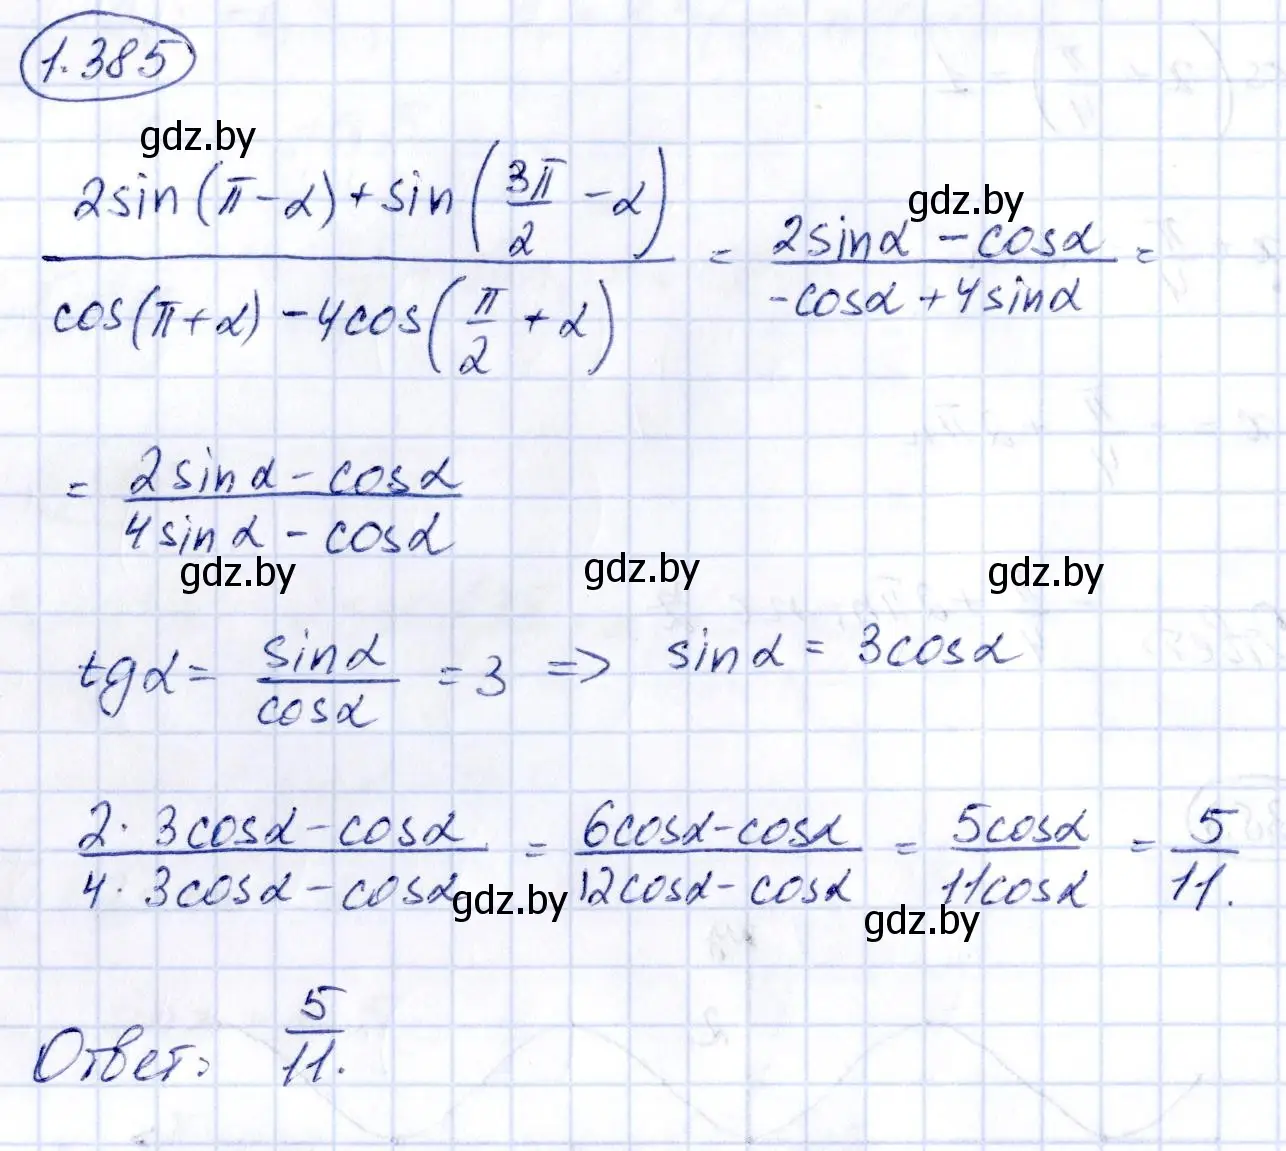 1.385
gdz.by
(2sin(π-α)+sin(3π/2 -α))/(cos(π+α)-4cos(π/2 +α)) = (2sinα - cosα)/(-cosα+4sinα) =
gdz.by
= (2sinα - cosα)/(4sinα - cosα)
gdz.by gdz.by gdz.by
tgα = sinα/cosα = 3 => sinα = 3cosα
(2· 3cosα - cosα)/(4· 3cosα - cosα) = (6cosα - cosα)/(12cosα - cosα) = 5cosα/11cosα = 5/11.
gdz.by gdz.by
Ответ: 5/11.